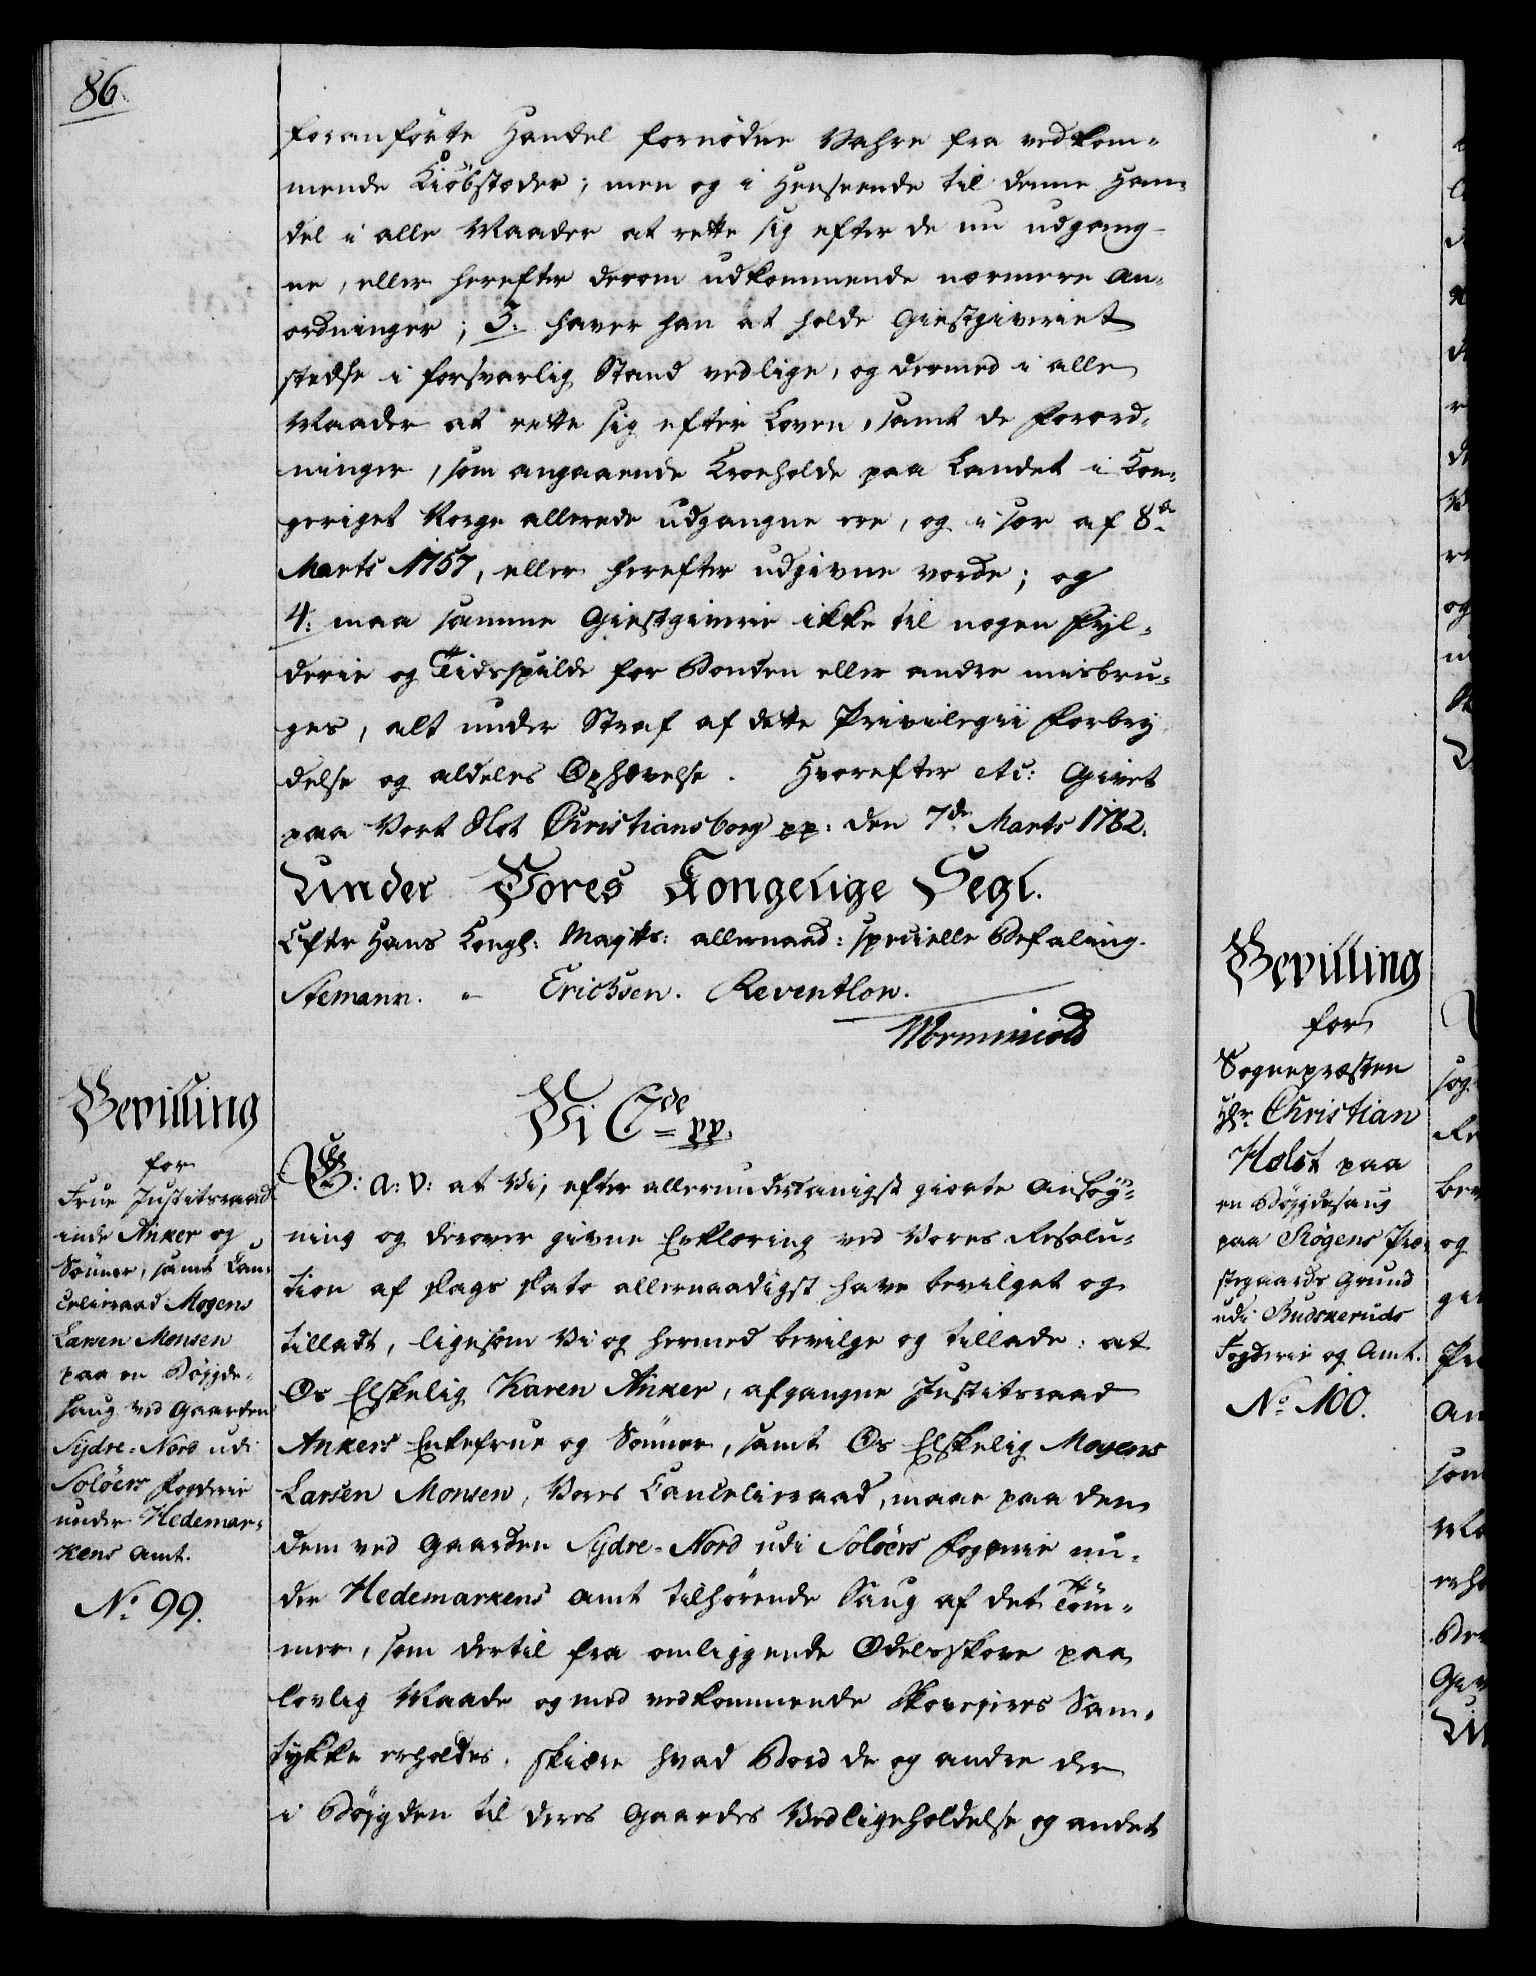 86.
foranførte Handel fornødne Vahre fra vedkom-
mende Kiöbstæder; men og i Henseende til denne Han-
del i alle Maader at rette sig efter de nu udgang-
ne, eller herefter derom udkommende nærmere An-
ordninger; 3. haver han at holde Giestgiveriet
stedse i forsvarlig Stand vedlige, og dermed i alle
Maader at rette sig efter Loven, samt de Forord-
ninger, som angaaende Kroeholde paa Landet i Kon-
geriget Norge allerede udgangne ere, og i sær af 8de
Marts 1757, eller herefter udgivne vorde; og
4. maa samme Giestgiverie ikke til nogen Fyl-
derie og Tidsspilde for Bonden eller andre misbru-
ges, alt under Straf af dette Privilegii Forbry-
delse og aldeles Ophævelse. Hvorefter etc: Givet
paa Vort Slot Christiansborg pp: den 7de Marts 1782.
Under Vores Kongelige Segl.
Efter Hans Kongl: Maytts: allernaad: specielle Befaling.
Stemann. " Erichsen. Reventlow.
Wormskiold
Bevilling
for
Frue Justitsraad-
inde Anker og
Sønner, samt Can-
celieraad Mogens
Larsen Monsen
paa en Bøigde-
saug ved Gaarden
Sydre-Nord udi
Soløers Fogderie
under Hedemar-
kens Amt.
No. 99.
Vi C 7de pp.
G: A: V: at Vi, efter allerunderdanigst giorte Ansøg-
ning og derover givne Erklæring ved Vores Resolu-
tion af Dags Dato allernaadigst have bevilget og
tilladt, ligesom Vi og hermed bevilge og tillade: at
Os Elskelig Karen Anker, afgangne Justitsraad
Ankers Enkefrue og Sønner, samt Os Elskelig Mogens
Larsen Monsen, Vores Cancelieraad, maae paa den
dem ved Gaarden Sydre-Nord udi Soløers Fogderie un-
der Hedemarkens Amt tilhørende Saug af det Töm-
mer, som dertil fra omliggende Odelsskove paa
lovlig Maade og med vedkommende Skoveieres Sam-
tykke erholdes, skiære hvad Bord de og andre der
i Bøjgden til deres Gaardes Vedligeholdelse og andet
Bevilling
for
Sognepræsten
Hr. Christian
Holst paa
en Bøjgdesaug
paa Røgens Præ-
stegaards Grund
udi Buskeruds
Fogderie og Amt.
No. 100.